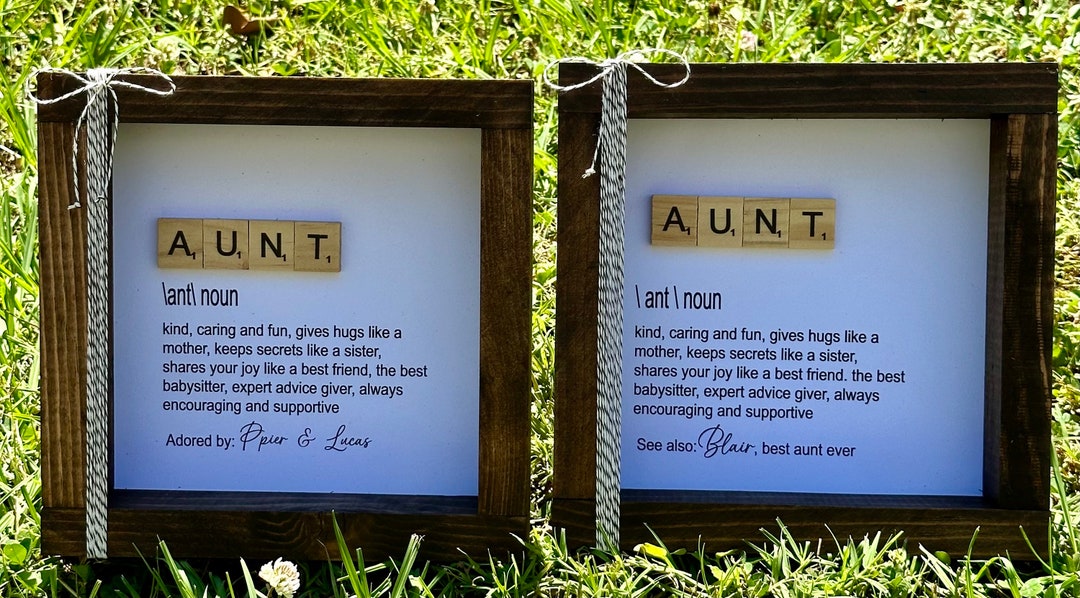 AUNT
\ant\ noun
kind, caring and fun, gives hugs like a
mother, keeps secrets like a sister,
shares your joy like a best friend, the best
babysitter, expert advice giver, always
encouraging and supportive
Adored by: Ppier & Lucas
AUNT
\ ant \ noun
kind, caring and fun, gives hugs like a
mother, keeps secrets like a sister,
shares your joy like a best friend. the best
babysitter, expert advice giver, always
encouraging and supportive
See also: Blair, best aunt ever